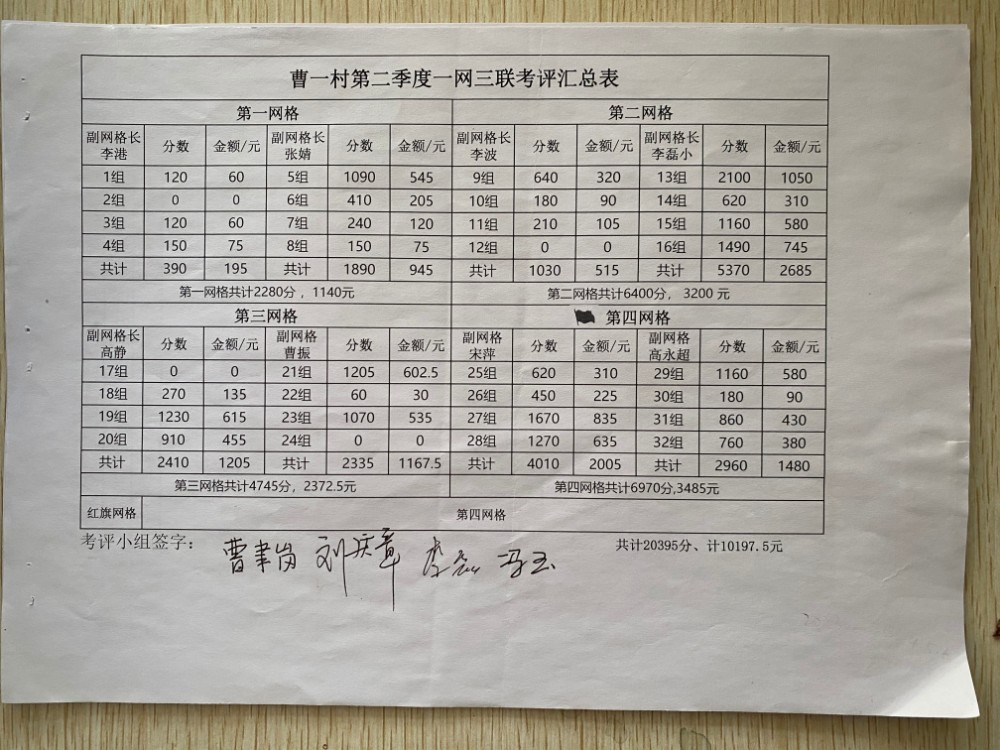 曹一村第二季度一网三联考评汇总表
第一网格 第二网格
副网格长李港 分数 金额/元 副网格长张婧 分数 金额/元 副网格长李波 分数 金额/元 副网格长李磊小 分数 金额/元
1组 120 60 5组 1090 545 9组 640 320 13组 2100 1050
2组 0 0 6组 410 205 10组 180 90 14组 620 310
3组 120 60 7组 240 120 11组 210 105 15组 1160 580
4组 150 75 8组 150 75 12组 0 0 16组 1490 745
共计 390 195 共计 1890 945 共计 1030 515 共计 5370 2685
第一网格共计2280分，1140元 第二网格共计6400分， 3200 元
第三网格 第四网格
副网格长高静 分数 金额/元 副网格曹振 分数 金额/元 副网格宋萍 分数 金额/元 副网格高永超 分数 金额/元
17组 0 0 21组 1205 602.5 25组 620 310 29组 1160 580
18组 270 135 22组 60 30 26组 450 225 30组 180 90
19组 1230 615 23组 1070 535 27组 1670 835 31组 860 430
20组 910 455 24组 0 0 28组 1270 635 32组 760 380
共计 2410 1205 共计 2335 1167.5 共计 4010 2005 共计 2960 1480
第三网格共计4745分，2372.5元 第四网格共计6970分,3485元
红旗网格 第四网格
考评小组签字： 共计20395分、计10197.5元